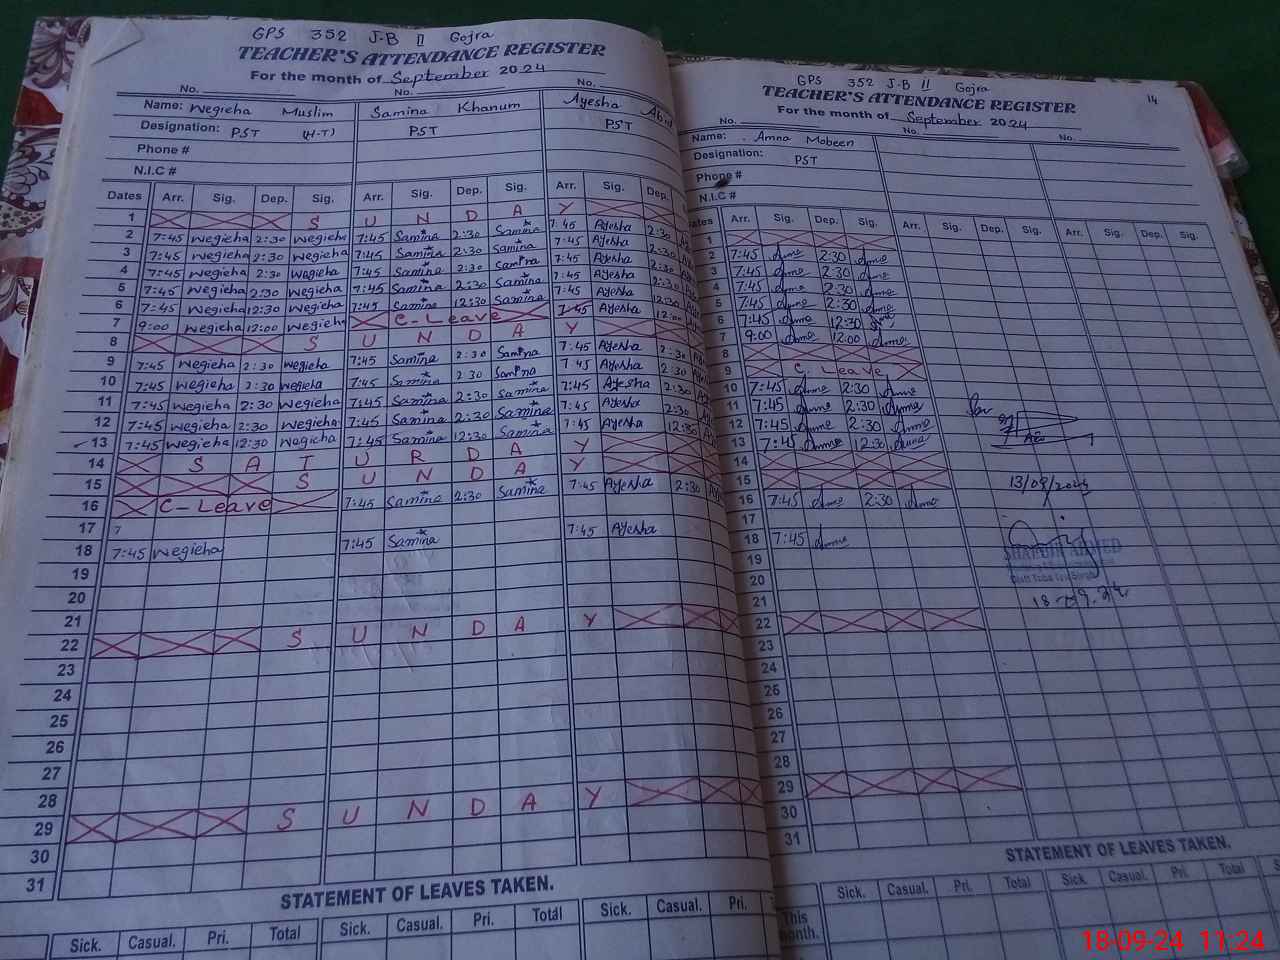 GPS 352 J-B II Gojra
TEACHER'S ATTENDANCE REGISTER
For the month of September 2024
No. No. No.
Name: Wegieha Muslim Samina Khanum Ayesha Abid
Designation: PST (H-T) PST PST
Phone #
N.I.C #
Dates Arr. Sig. Dep. Sig. Arr. Sig. Dep. Sig. Arr. Sig. Dep.
1 S U N D A Y
2 7:45 Wegieha 2:30 Wegieha 7:45 Samina 2:30 Samina 7:45 Ayesha 2:30
3 7:45 Wegieha 2:30 Wegieha 7:45 Samina 2:30 Samina 7:45 Ayesha 2:30
4 7:45 Wegieha 2:30 Wegieha 7:45 Samina 2:30 Samina 7:45 Ayesha 2:30
5 7:45 Wegieha 2:30 Wegieha 7:45 Samina 2:30 Samina 7:45 Ayesha 2:30
6 7:45 Wegieha 12:30 Wegieha 7:45 Samina 12:30 Samina 7:45 Ayesha 12:30
7 9:00 Wegieha 12:00 Wegieha C-Leave 7:45 Ayesha 12:00
8 S U N D A Y
9 7:45 Wegieha 2:30 Wegieha 7:45 Samina 2:30 Samina 7:45 Ayesha 2:30
10 7:45 Wegieha 2:30 Wegieha 7:45 Samina 2:30 Samina 7:45 Ayesha 2:30
11 7:45 Wegieha 2:30 Wegieha 7:45 Samina 2:30 Samina 7:45 Ayesha 2:30
12 7:45 Wegieha 2:30 Wegieha 7:45 Samina 2:30 Samina 7:45 Ayesha 2:30
13 7:45 Wegieha 12:30 Wegieha 7:45 Samina 12:30 Samina 7:45 Ayesha 12:30
14 S A T U R D A Y
15 S U N D A Y
16 C-Leave 7:45 Samina 2:30 Samina 7:45 Ayesha 2:30
17 7
18 7:45 Wegieha 7:45 Samina 7:45 Ayesha
19
20
21
22 S U N D A Y
23
24
25
26
27
28
29 S U N D A Y
30
31
STATEMENT OF LEAVES TAKEN.
Sick. Casual. Pri. Total Sick. Casual. Pri. Total Sick. Casual. Pri.
GPS 352 J-B II Gojra
TEACHER'S ATTENDANCE REGISTER 14
For the month of September 2024
No. No. No.
Name: Amna Mobeen
Designation: PST
Phone #
N.I.C #
Dates Arr. Sig. Dep. Sig. Arr. Sig. Dep. Sig. Arr. Sig. Dep. Sig.
1
2 7:45 2:30
3 7:45 2:30
4 7:45 2:30
5 7:45 2:30
6 7:45 12:30
7 9:00 12:00
8
9 C. Leave
10 7:45 2:30
11 7:45 2:30
12 7:45 2:30
13 7:45 12:30
14
15
13/09/2024
16 7:45 2:30
17
18 7:45
SHABBIR AHMED
19
18-09-24
20
21
22
23
24
25
26
27
28
29
30
31
STATEMENT OF LEAVES TAKEN.
Sick. Casual. Pri. Total Sick. Casual. Pri. Total
This month.
18-09-24 11:24